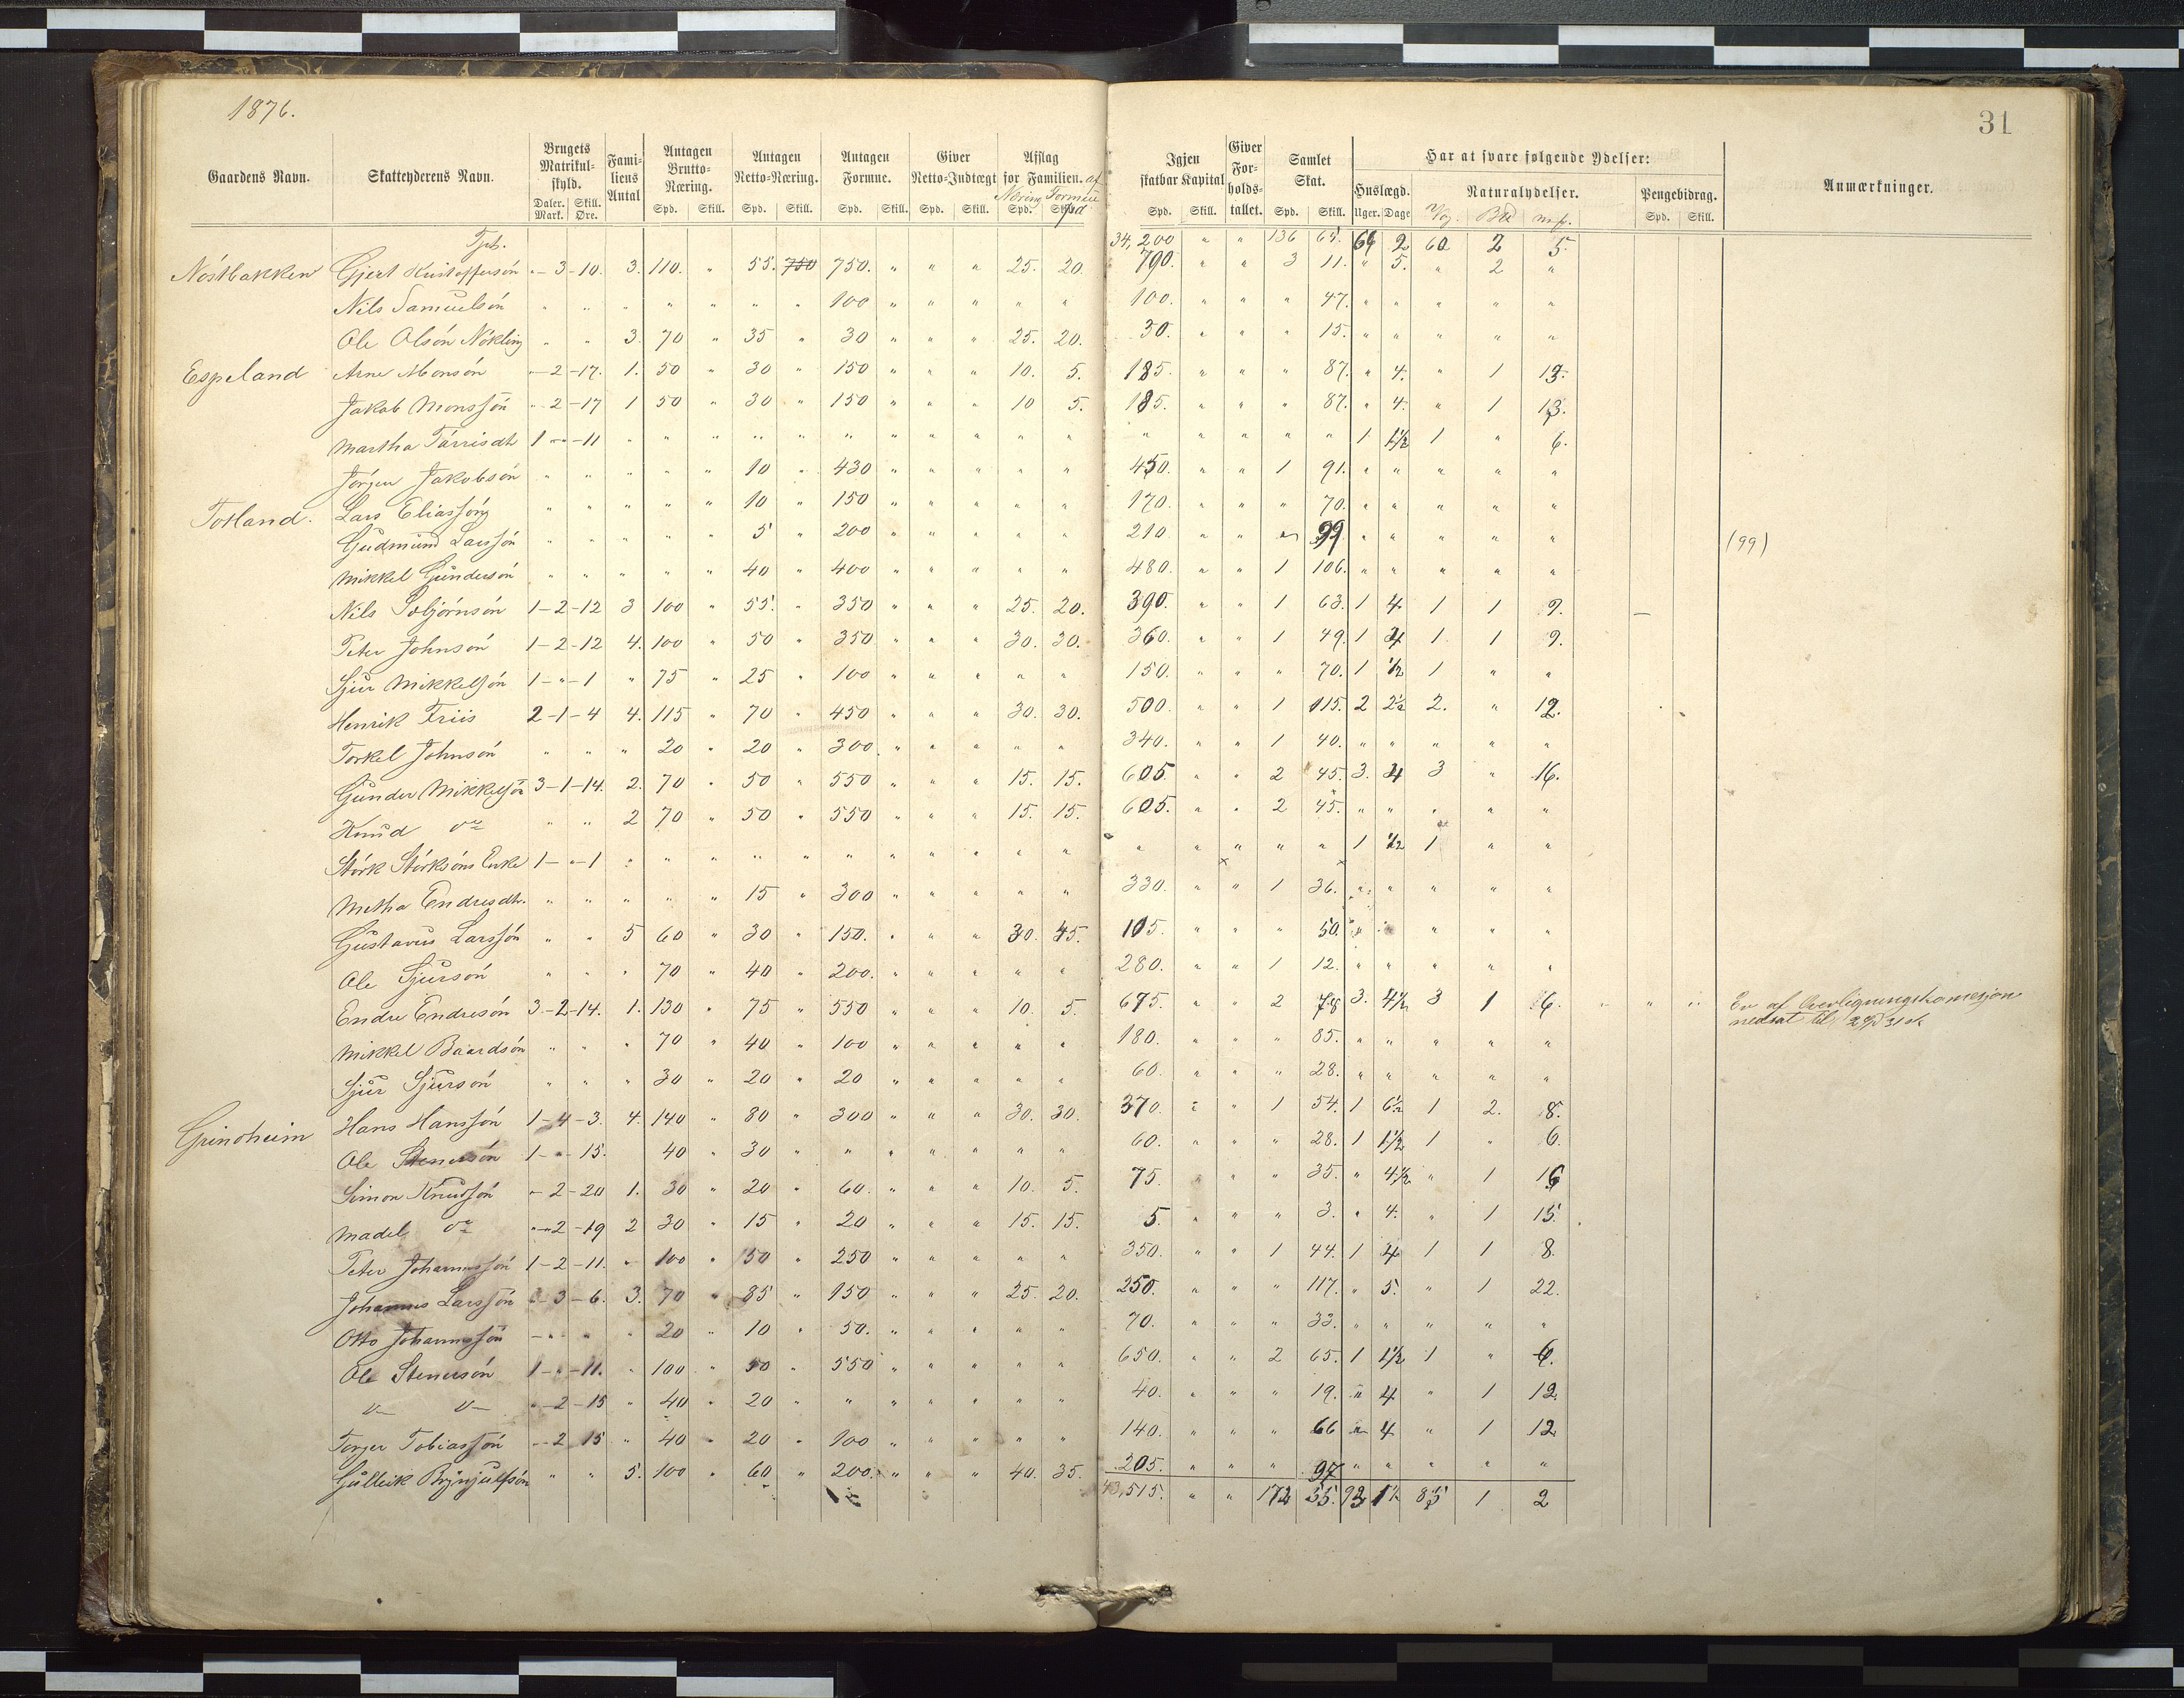 1876.
31
Gaardens Navn. Skatteyderens Navn. Brugets Matrikul-skyld. Daler. Mark. Skill. Øre. Fami-liens Antal Antagen Brutto-Næring. Spd. Skill. Antagen Netto-Næring. Spd. Skill. Antagen Formue. Spd. Skill. Giver Netto-Indtægt Spd. Skill. Afslag for Familien. af Næring Formue Spd. Skill. Spd Igjen skatbar Kapital Spd. Skill. Giver For-holds-tallet. Samlet Skat. Spd. Skill. Har at svare følgende Ydelser: Huslægd. Uger. Dage Naturalydelser. Pengebidrag. Spd. Skill. Anmærkninger.
34,200 " " 136 65. 2 60 2 5.
Nöstbakken Gjert Kristoffersön "-3-10. 3. 110. " 55. 750 750. " " " 25. 20. 790. " " 3 11. " 5. " 2 "
Nils Samuelsön " " " " " " " 100 " " " " " 100. " " " 47. " " " " "
Ole Olsön Nökling " " 3. 70 " 35 " 30 " " " 25. 20. 30. " " " 15. " " " " "
Espeland Arne Monsön "-2-17. 1. 50 " 30 " 150 " " " 10. 5. 185. " " " 87. " 4. " 1 13.
Jakob Monssön "-2-17 1 50 " 30 " 150 " " " 10 5. 185. " " " 87. " 4. " 1 13.
Martha Tarrisdtr 1-"-11 " " " " " " " " " " " " " " " " 1 1½ 1 " 6.
Jörgen Jakobsön " " " " " 10 " 430 " " " " " 450. " " 1 91. " " " " "
Totland. Lars Eliassön " " " " " 10 " 150 " " " " " 170. " " " 70. " " " " "
Gudmund Larssön " " " " " 5 " 200 " " " " " 210 " " " 99 " " " " " (99)
Mikkel Gundersön " " " " " 40 " 400 " " " " " 480. " " 1 106. " " " " "
Nils Torbjörnsön 1-2-12 3 100 " 55. " 350 " " " 25. 20. 390. " " 1 63. 1 4 1 1 9.
Peter Johnsön 1-2-12 4. 100 " 50 " 350 " " " 30. 30. 360. " " 1 49. 1 4 1. 1 9.
Sjur Mikkelsön 1-"-1 " 75 " 25 " 100 " " " " " 150. " " " 70. 1 ½ 1 " "
Henrik Friis 2-1-4 4. 115 " 70 " 450 " " " 30. 30. 500. " " 1 115. 2 2½ 2. " 12.
Torkel Johnsön " " " 20 " 20 " 300 " " " " " 340. " " 1 40. " " " " "
Gunder Mikkelsön 3-1-14. 2. 70 " 50 " 550 " " " 15. 15. 605. " " 2 45. 3. 4 3 " 16.
Knud do " " 2 70 " 50 " 550 " " " 15. 15. 605. " " 2 45. " " " " "
Störk Störksöns Enke 1-"-1 " " " " " " " " " " " " " " " " 1 ½ 1 " "
Metha Endresdtr. " " " " " 15 " 300 " " " " " 330. " " 1 36. " " " " "
Gustavus Larssön " " 5 60 " 30 " 150. " " " 30. 45. 105. " " " 50. " " " " "
Ole Sjursön " " " 70 " 40 " 200. " " " " " 280. " " 1 12. " " " " "
Endre Endresön 3-2-14. 1. 130 " 75 " 550 " " " 10. 5. 675. " " 2 78 3. 4½ 3 1 6. " " " Er af Overligningskomesjon
nedsat til 2 Spd 31 sk
Mikkel Baardsön " " " 70 " 40 " 100 " " " " " 180. " " " 85. " " " " "
Sjur Sjursön " " " 30 " 20 " 20 " " " " " 60. " " " 28. " " " " "
Grindheim Hans Hanssön 1-4-3. 4. 140 " 80 " 300 " " " 30. 30. 370. " " 1 54. 1 6½ 1 2. 8.
Ole Stenersön 1-"-15. 40 " 30 " " " " " " " 60. " " " 28. 1 1½ 1 " 6.
Simon Knudsön "-2-20 1. 30 " 20 " 60. " " " 10. 5. 75. " " " 35. " 4½ " 1 16
Madel do "-2-19 2 30 " 15 " 20 " " " 15. 15. 5. " " " 3. " 4. " 1 15.
Peter Johannessön 1-2-11. " 100 " 50 " 250 " " " " " 350. " " 1 44. 1 4 1 1 8.
Johannes Larssön "-3-6. 3. 70 " 85 " 150 " " " 25. 20. 250. " " " 117. " 5. " 1 22.
Otto Johannessön " " " 20 " 10 " 50. " " " " " 70. " " " 33. " " " " "
Ole Stenersön 1-"-11. " 100 " 50 " 550 " " " " " 650. " " 2 65. 1 1½ 1 " 6.
do do "-2-15 " 40 " 20 " " " " " " " 40. " " " 19. " 4 " 1 12.
Torger Tobiassön "-2 15 " 40 " 20 " 100 " " " " " 140. " " " 66 " 4 " 1 12
Gulleik Brynjulfsön " " 5. 100 " 60 " 200. " " " 40. 35. 205. " " " 97 " " " " "
43,515. " " 172 55. 1½ 85 1 2